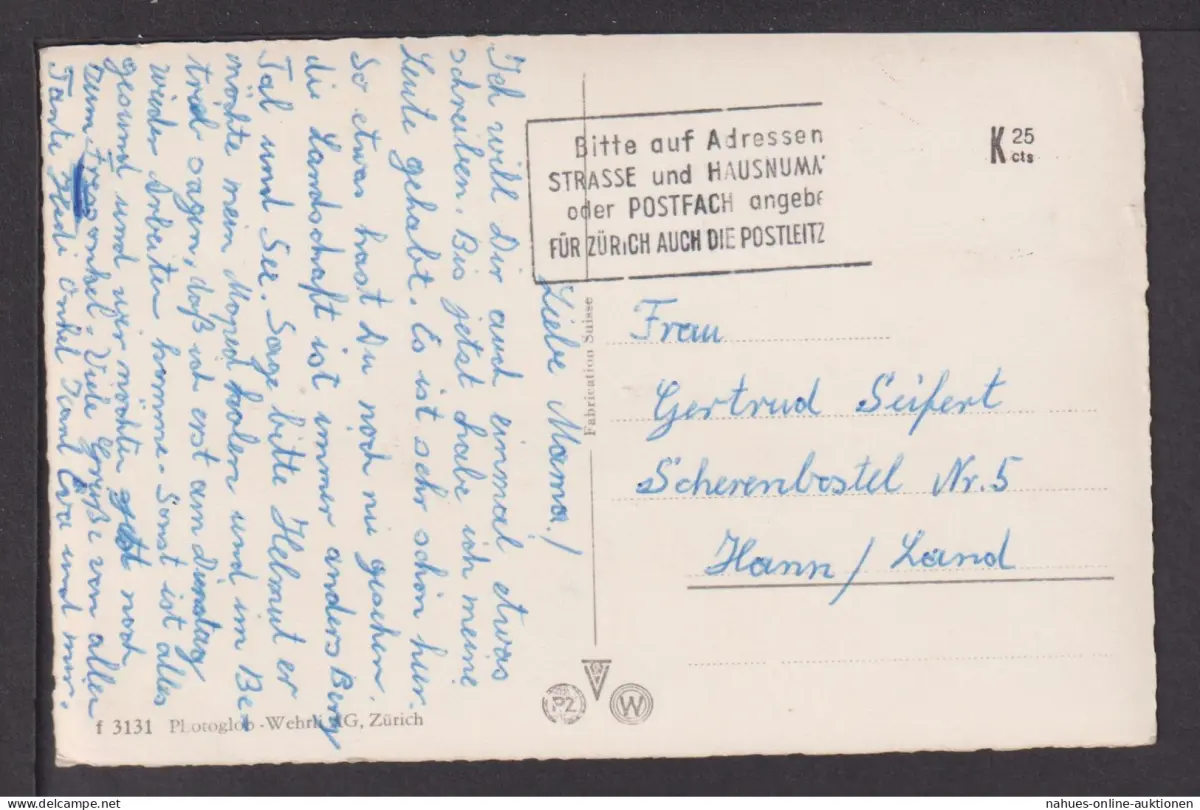 Liebe Mama!
Ich will Dir auch einmal etwas
schreiben. Bis jetzt habe ich meine
Leute gehabt. Es ist sehr schön hier.
So etwas hast Du noch nie gesehen.
die Landschaft ist immer anders Berg
Tal und See. Sage bitte Helmut er
möchte mein Moped holen und im Be
trieb sagen, daß ich erst am Dienstag
wieder Arbeiten komme. Sonst ist alles
gesund und wir möchten noch
zum onkel. Viele Grüße von allen
Tante Heidi Onkel Karl Eva und mir.
Bitte auf Adressen
STRASSE und HAUSNUM
oder POSTFACH angebe
FÜR ZÜRICH AUCH DIE POSTLEITZ
K 25
cts
Frau
Gertrud Seifert
Scherenbostel Nr. 5
Hann/Land
Fabrication Suisse
PZ
W
f 3131 Photoglob-Wehrli AG, Zürich
www.nahues-online-auktionen